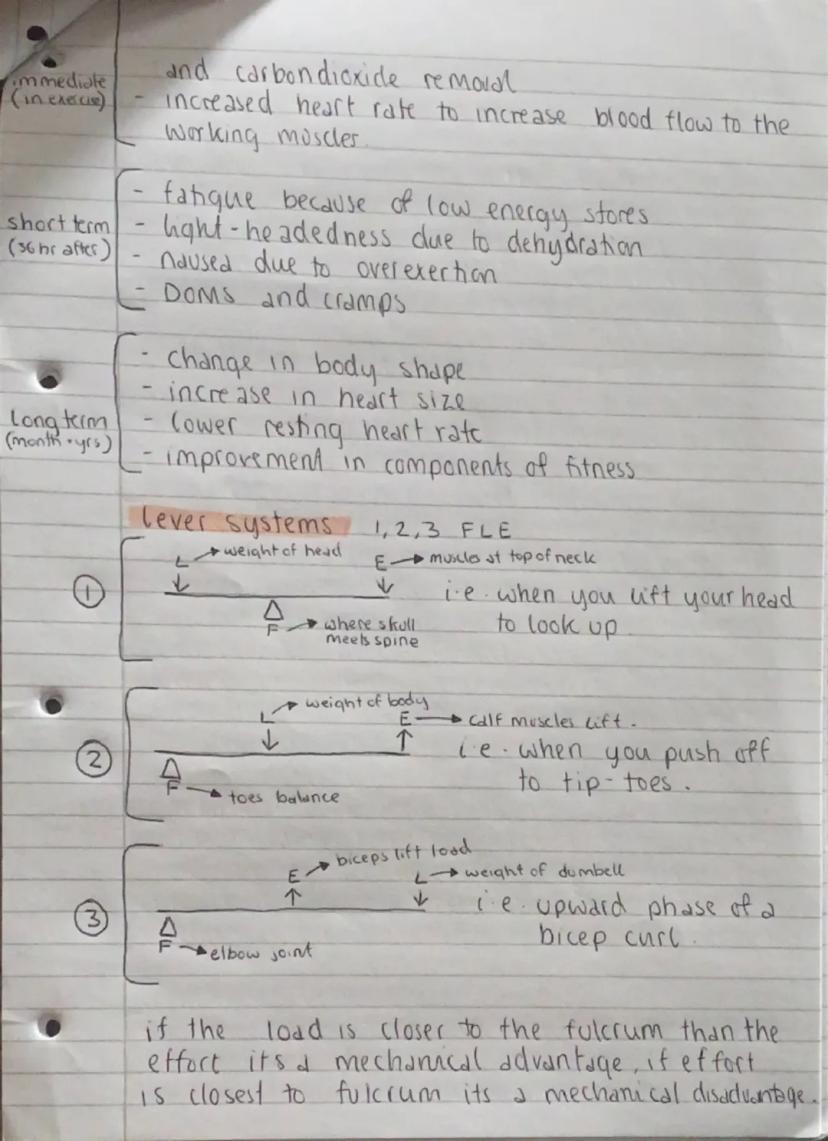 and carbondioxide removal
immediate
(in exercise)
- increased heart rate to increase blood flow to the
working muscles.
short term
(36hr after)
- fatigue because of low energy stores
- light-headedness due to dehydration
- nausea due to overexertion
- DOMS and cramps
long term
(month+yrs)
- change in body shape
- increase in heart size
- lower resting heart rate
- improvement in components of fitness
lever systems 1,2,3 FLE
①
L → weight of head E → muscles at top of neck
i.e. when you lift your head
to look up
F → where skull
meets spine
②
L → weight of body
E → calf muscles lift.
i.e. when you push off
to tip-toes.
F → toes balance
③
E → biceps lift load
L → weight of dumbell
i.e. upward phase of a
bicep curl.
F → elbow joint
if the load is closer to the fulcrum than the
effort its a mechanical advantage, if effort
is closest to fulcrum its a mechanical disadvantage.